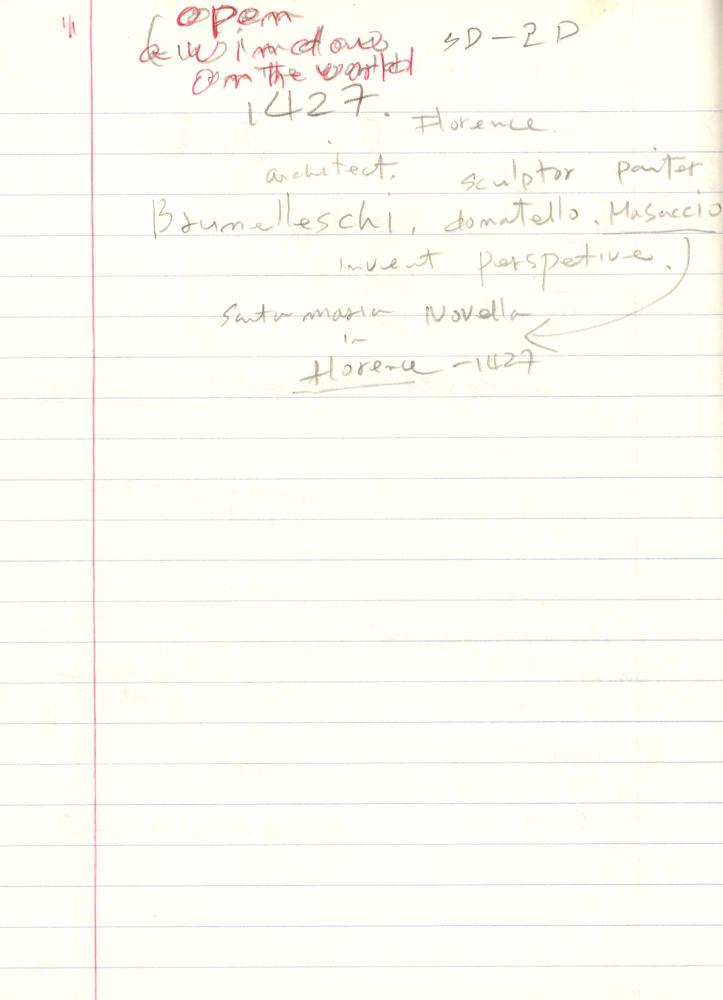 1/1
open
windows 3D-2D
on the world
1427. Florence.
architect. sculptor painter
Brunelleschi, donatello. Masaccio
invent perspetive.
Santa maria Novella
in
florence -1427